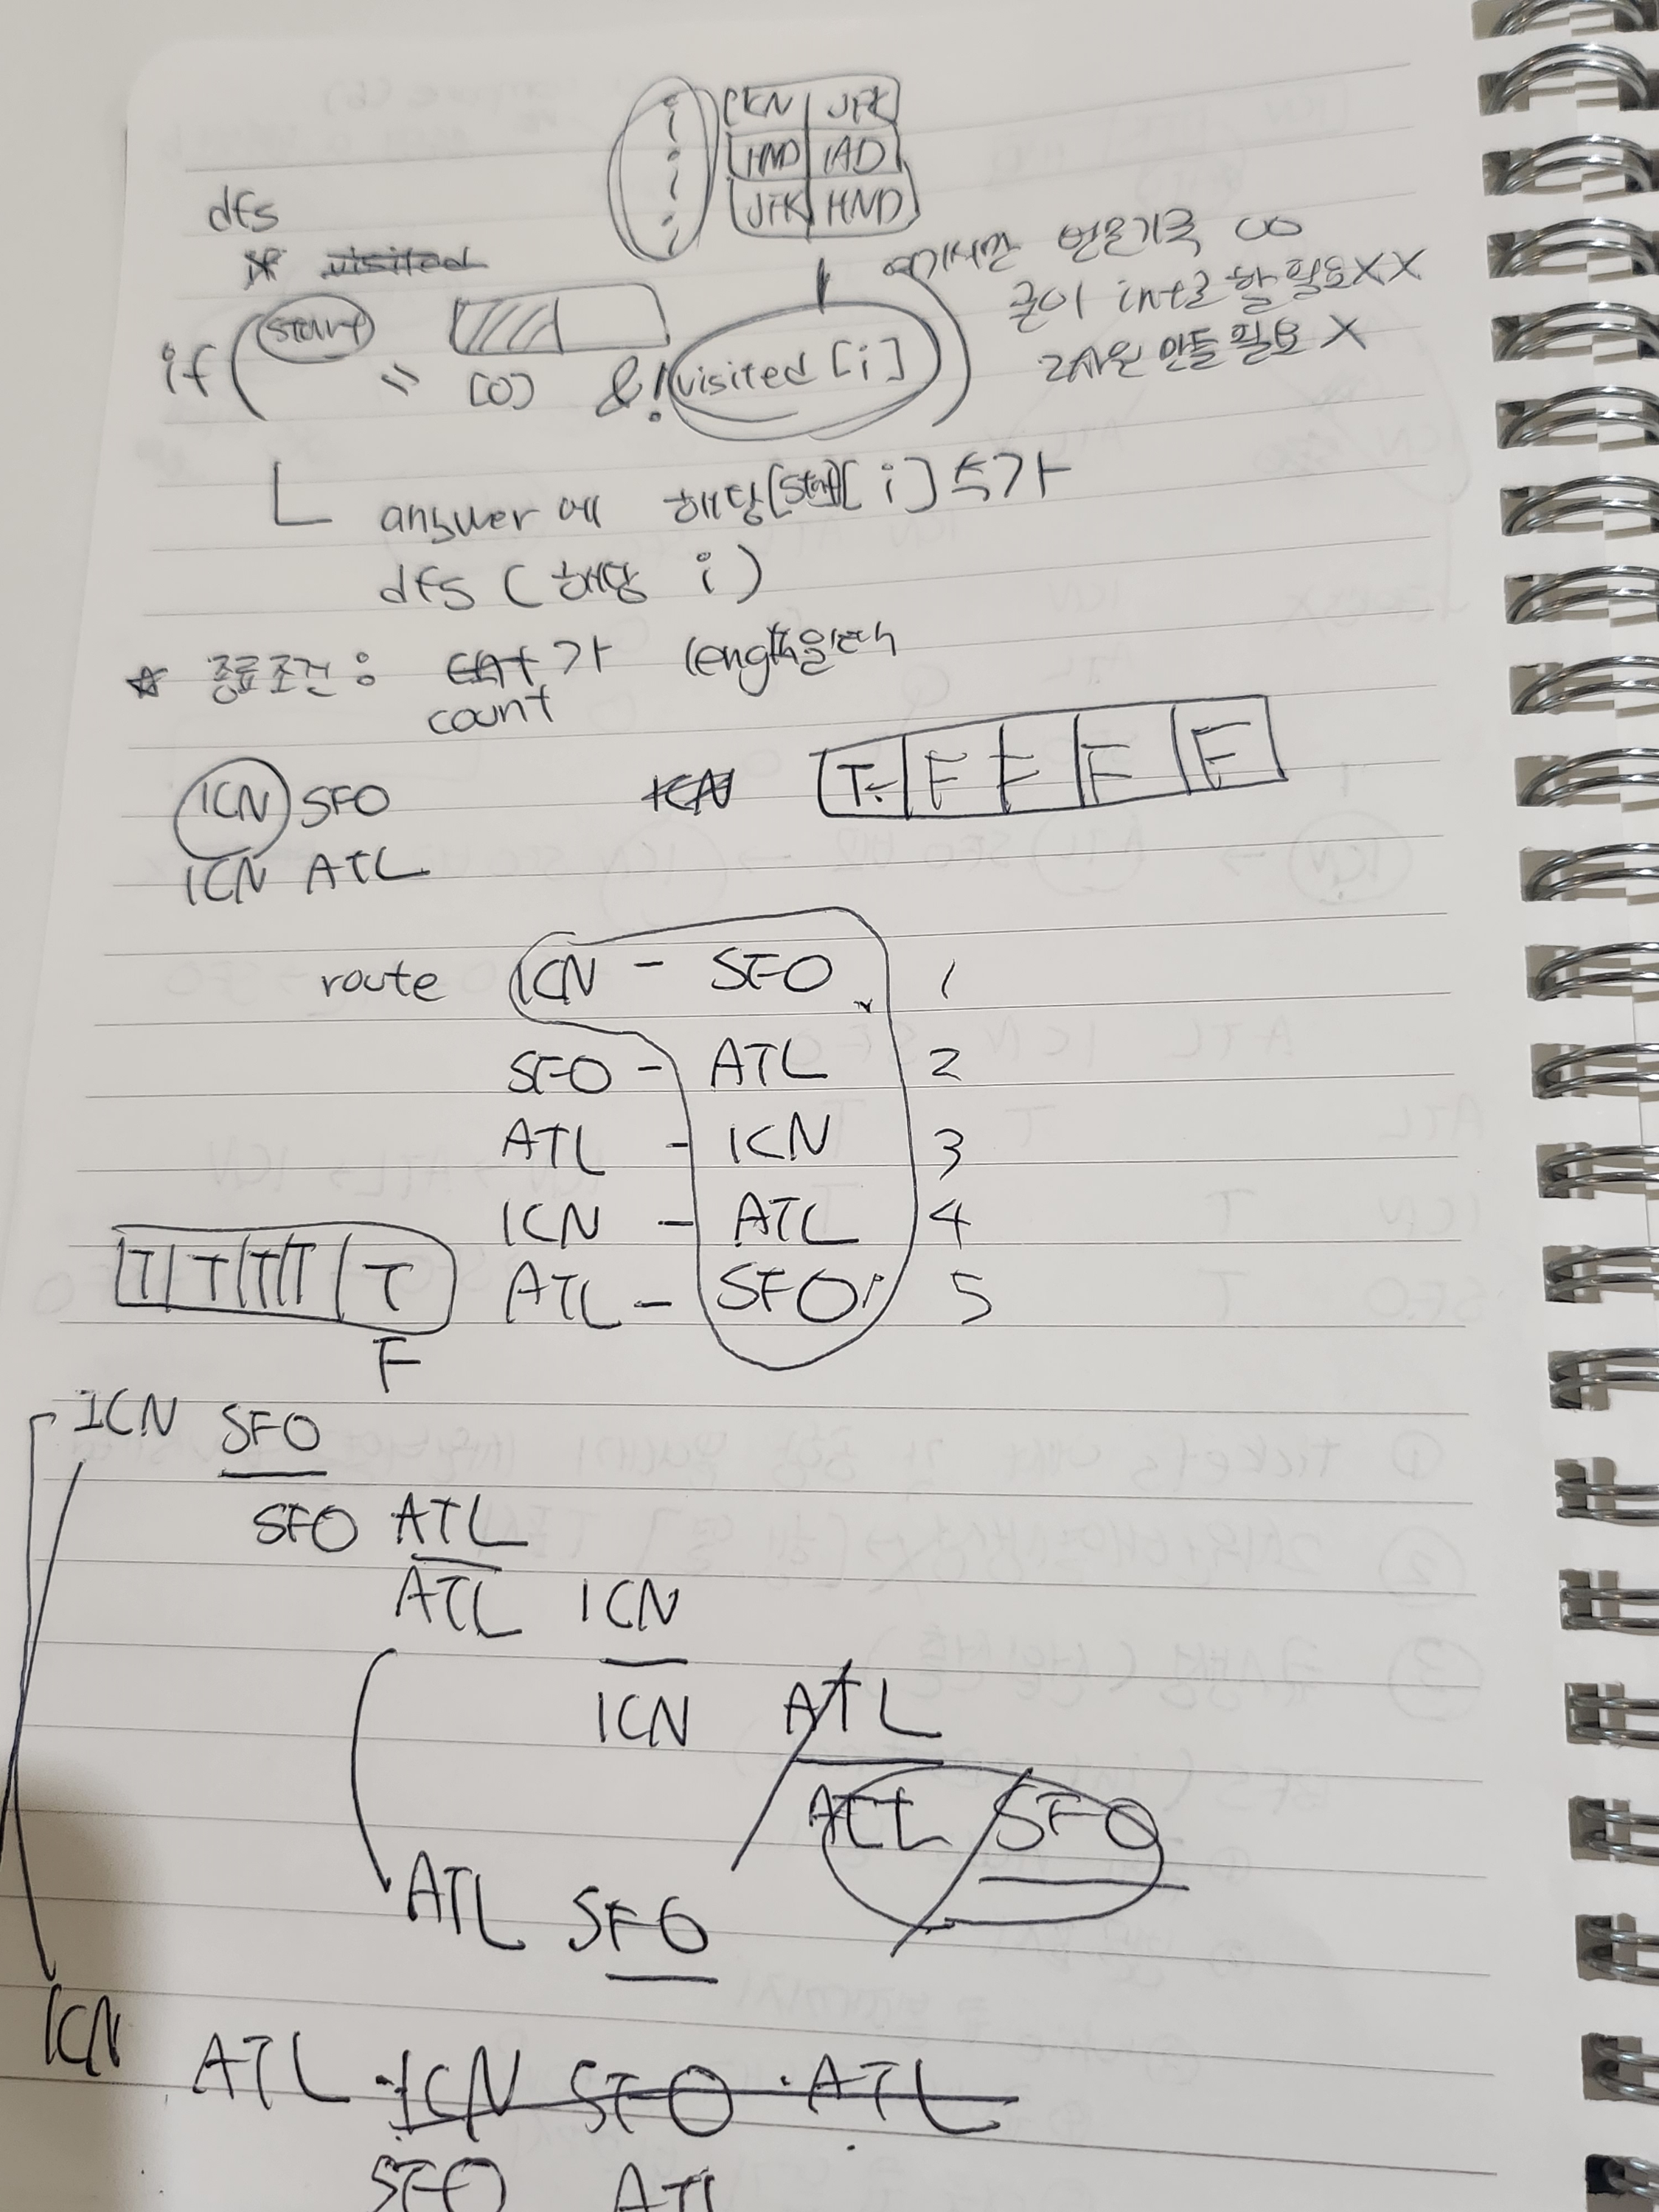 ICN JFK
HND IAD
JFK HND
dfs
여기서만 번갈기록 00
굳이 int로 할 필요XX
2차원 만들 필요 X
if (start = [0] &!visited[i])
answer에 해당[i] 추가
dfs (해당 i)
☆ 종료조건 : count가 length일때
ICN SFO
T F F F F
ICN ATL
route ICN - SFO 1
SFO - ATL 2
ATL - ICN 3
ICN - ATL 4
T T T T T ATL - SFO 5
F
ICN SFO
SFO ATL
ATL ICN
ICN ATL
ATL SFO
ATL SFO
ICN ATL ICN SFO ATL
SFO ATL